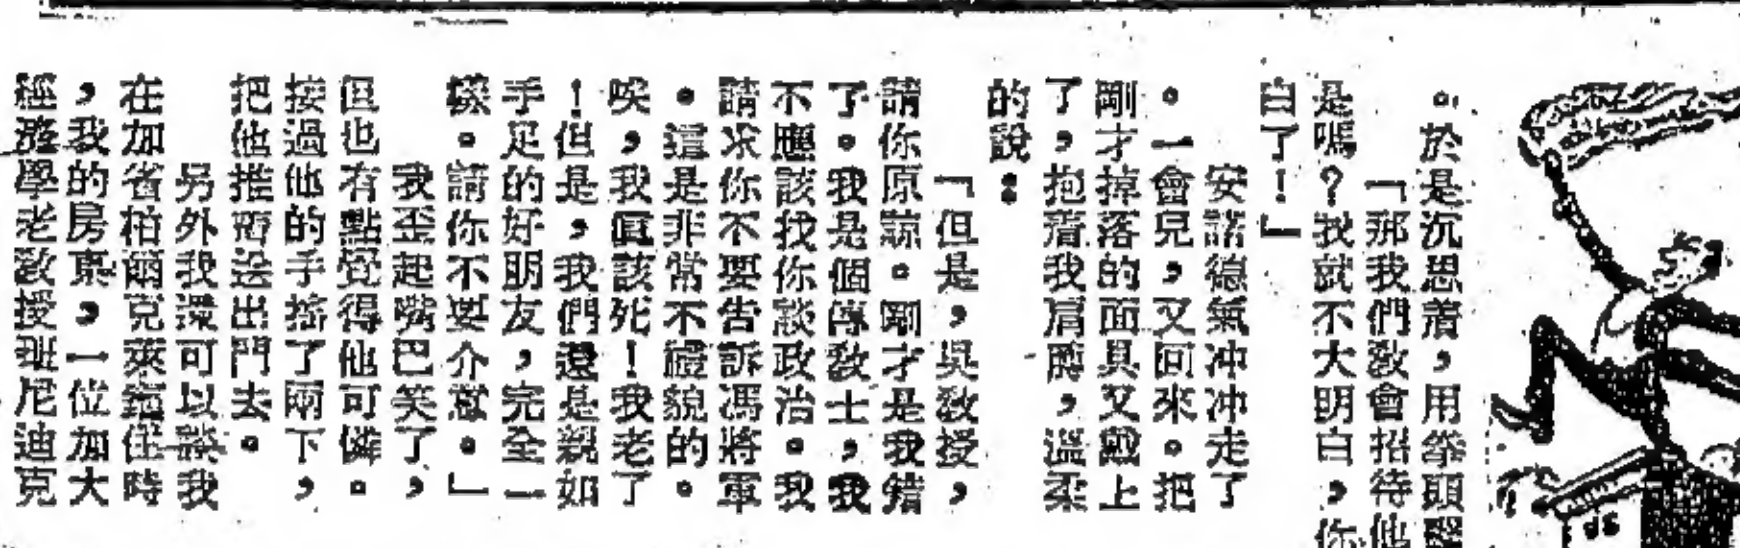 。於是沉思着，用拳頭
「那我們敎會招待他
是嗎？我就不大明白，你
白了！」
安諾德氣冲冲走了
。一會兒，又回來。把
剛才掉落的面具又戴上
了，抱着我肩膊，溫柔
的說：
「但是，吳敎授，
請你原諒。剛才是我錯
了。我是個傳敎士，我
不應該找你談政治。我
請求你不要告訴馮將軍
。這是非常不禮貌的。
唉，我眞該死！我老了
！但是，我們還是親如
手足的好朋友，完全一
樣。請你不要介意。」
我歪起嘴巴笑了，
但也有點覺得他可憐。
接過他的手搖了兩下，
把他推着送出門去。
另外我還可以談我
在加省柏爾克萊住時
，我的房東，一位加大
經濟學老敎授班尼迪克